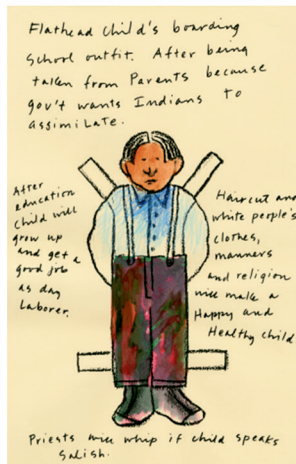 Flathead child's boarding
school outfit. After being
taken from Parents because
gov't wants Indians to
assimilate.
After
education
child will
grow up
and get a
good job
as day
Laborer.
Haircut and
white people's
clothes,
manners
and religion
will make a
Happy and
Healthy child
Priests will whip if child speaks
Salish.